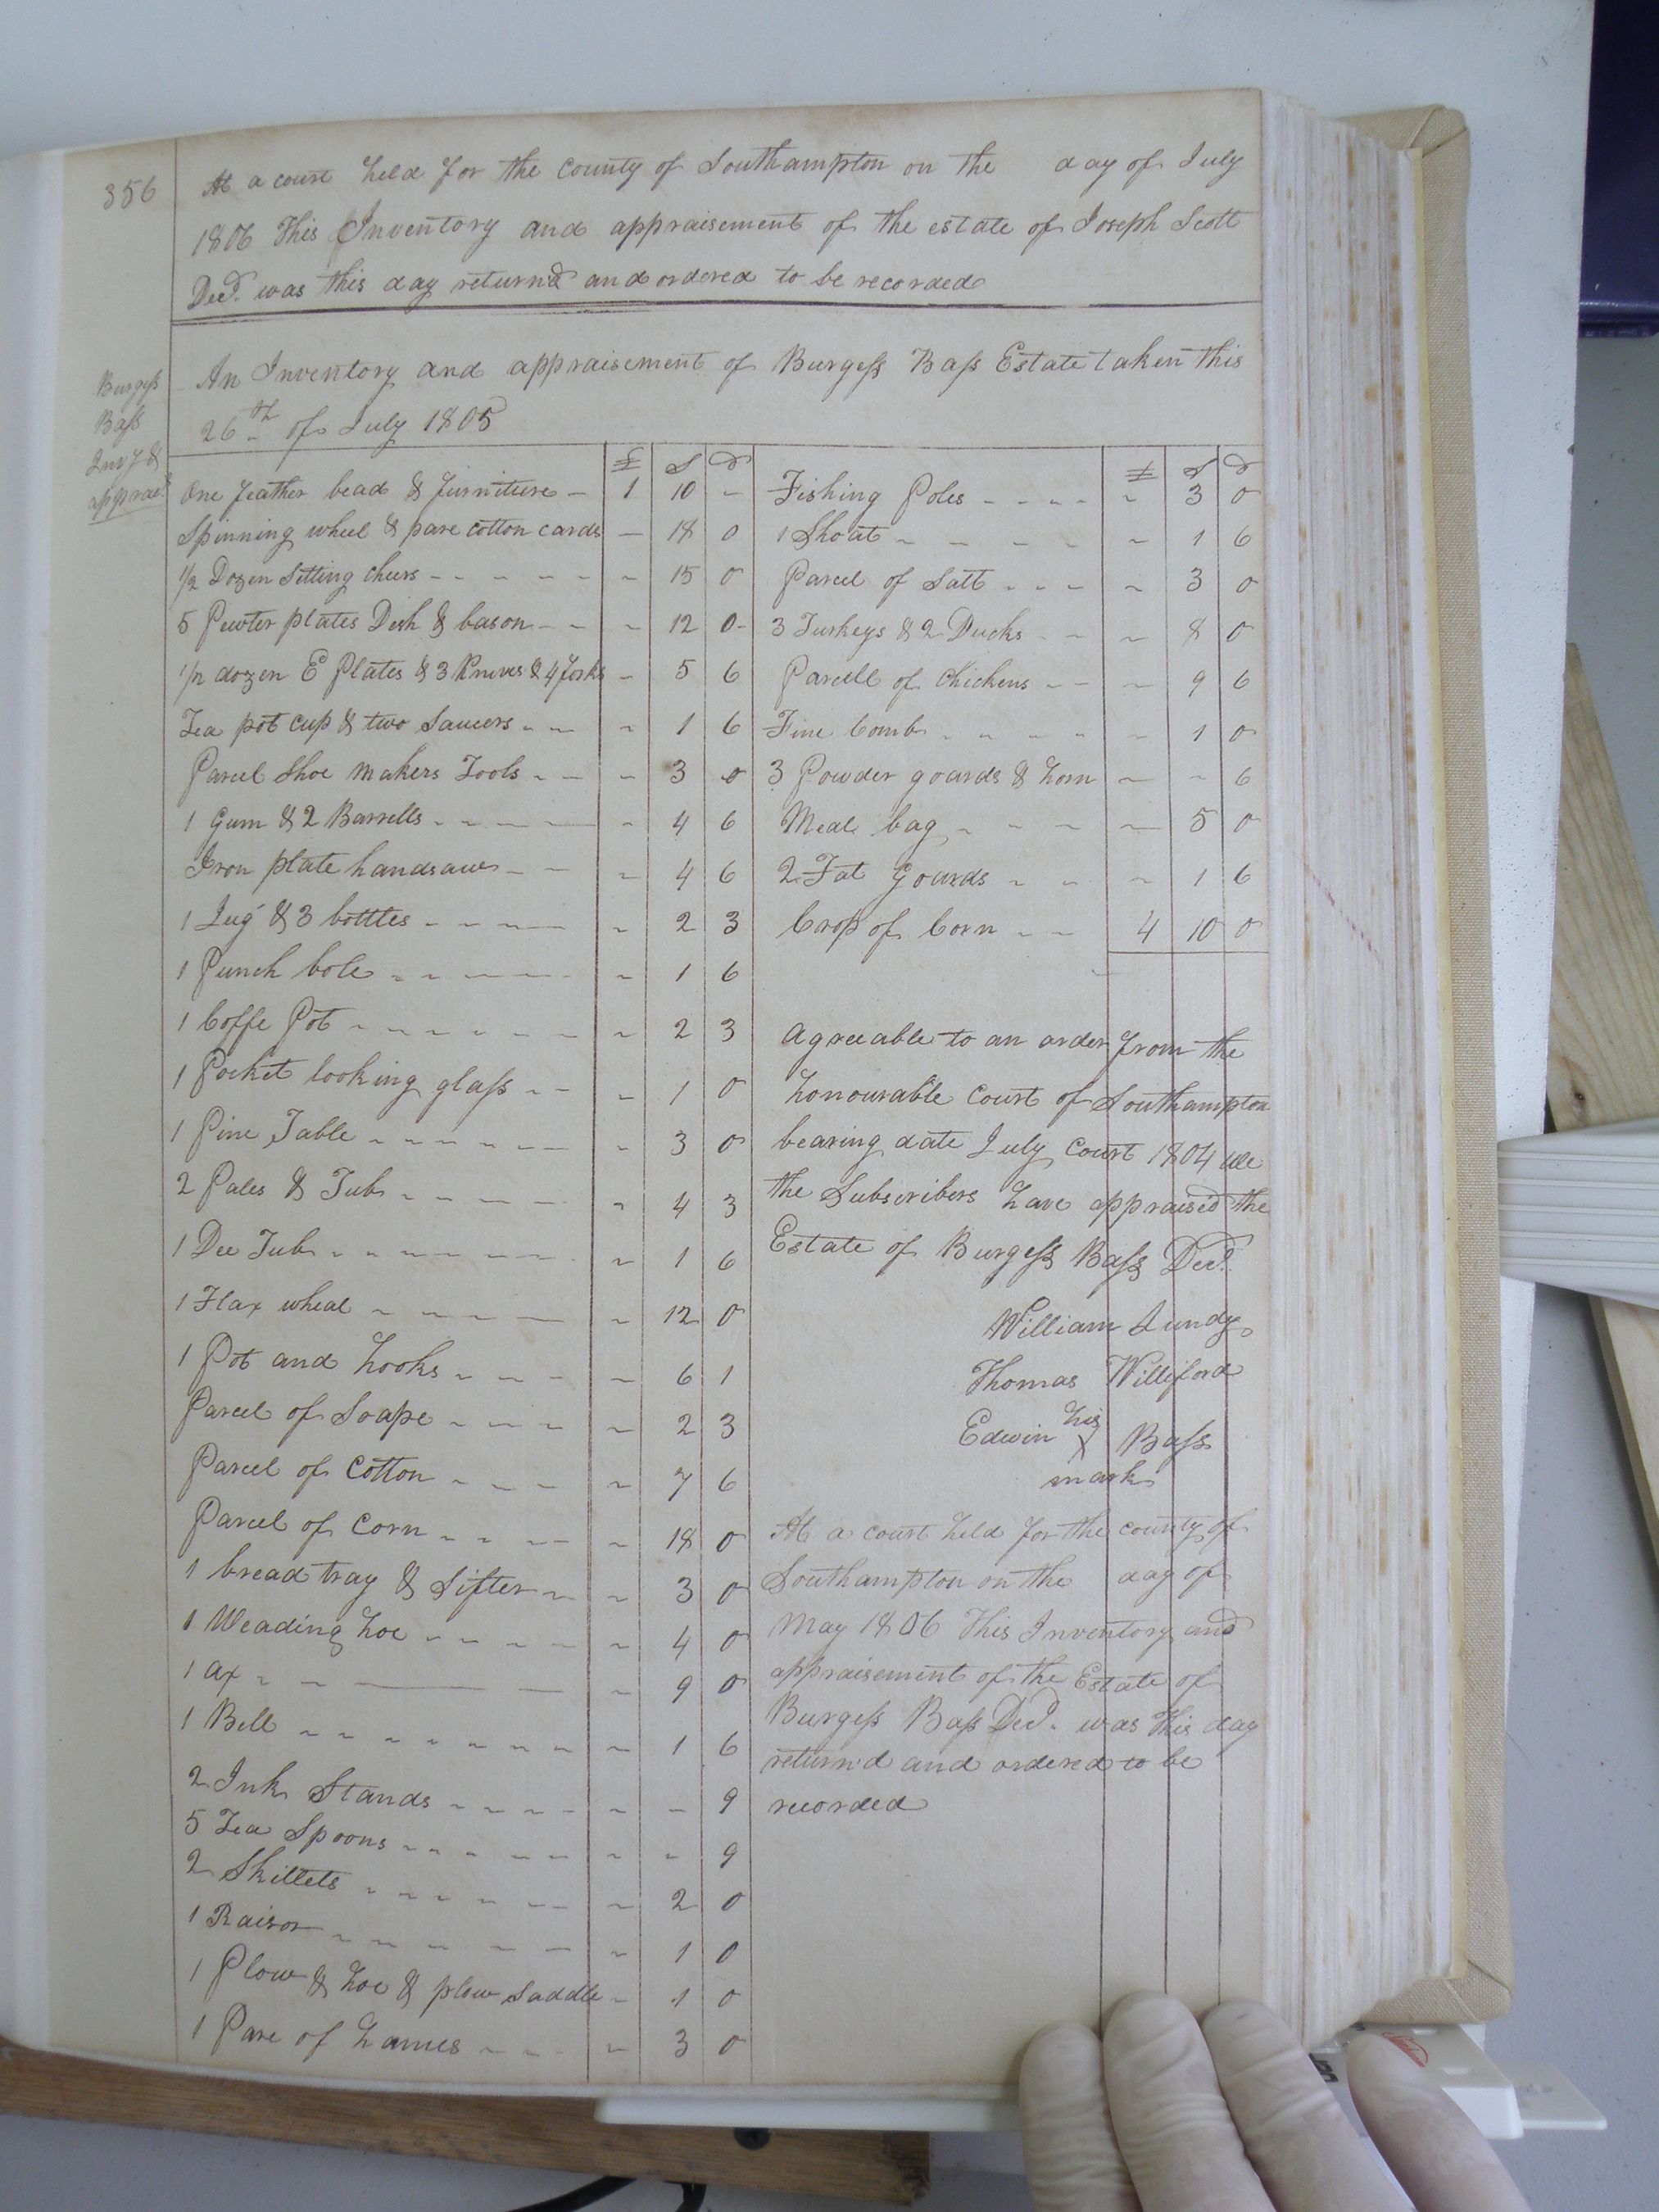 356
At a court held for the county of Southampton on the day of July
1806 This Inventory and appraisement of the estate of Joseph Scott
Decd. was this day return'd and ordered to be recorded
Burgess
Bass
Invy &
apprae.
An Inventory and appraisement of Burgess Bass Estate taken this
26th of July 1805
£ S D
One feather bead & furniture - 1 10 -
Spinning wheel & pare cotton cards - 18 0
1/2 Dozen Setting cheers - - - - - - 15 0
5 Pewter plates Desh & bason - - - 12 0-
1/2 dozen E Plates & 3 Knives & 4 forks - 5 6
Tea pot cup & two Saucers - - - 1 6
Parcel Shoe makers Tools - - - 3 0
1 Gum & 2 Barrells - - - - - 4 6
Iron plate handsaw - - - 4 6
1 Jug & 3 bottles - - - - - 2 3
1 Punch bole - - - - - - 1 6
1 Coffe Pot - - - - - - - 2 3
1 Pocket looking glass - - - 1 0
1 Pine Table - - - - - - - 3 0
2 Pales & Tub - - - - - 4 3
1 Dee Tub - - - - - - - 1 6
1 Flax wheal - - - - - 12 0
1 Pot and hooks - - - - - 6 1
Parcel of Soape - - - - - 2 3
Parcel of Cotton - - - - - 7 6
Parcel of Corn - - - - - 18 0
1 bread tray & Sifter - - - 3 0
1 Weading hoe - - - - - - 4 0
1 ax - - - - - 9 0
1 Bell - - - - - - - - 1 6
2 Ink Stands - - - - - - - 9
5 Tea Spoons - - - - - - - - 9
2 Skillets - - - - - - - 2 0
1 Raisor - - - - - - - 1 0
1 Plow & hoe & plow Saddle - 1 0
1 Pare of hames - - - - 3 0
£ S D
Fishing Poles - - - - - 3 0
1 Shoat - - - - - - 1 6
Parcel of Salt - - - - 3 0
3 Turkeys & 2 Ducks - - - 8 0
Parcell of Chickens - - - 9 6
Fine Comb - - - - - - 1 0
3 Powder goards & horn - - 6
Meal bag - - - - - 5 0
2 Fat Goards - - - 1 6
Crop of Corn - - 4 10 0
Agreeable to an order from the
honourable Court of Southampton
bearing date July Court 1804 We
the Subscribers have appraised the
Estate of Burgess Bass Decd.
William Lundy
Thomas Williford
Edwin his X Bass
mark
At a court held for the county of
Southampton on the day of
May 1806 This Inventory and
appraisement of the Estate of
Burgess Bass Decd. was this day
return'd and ordered to be
recorded